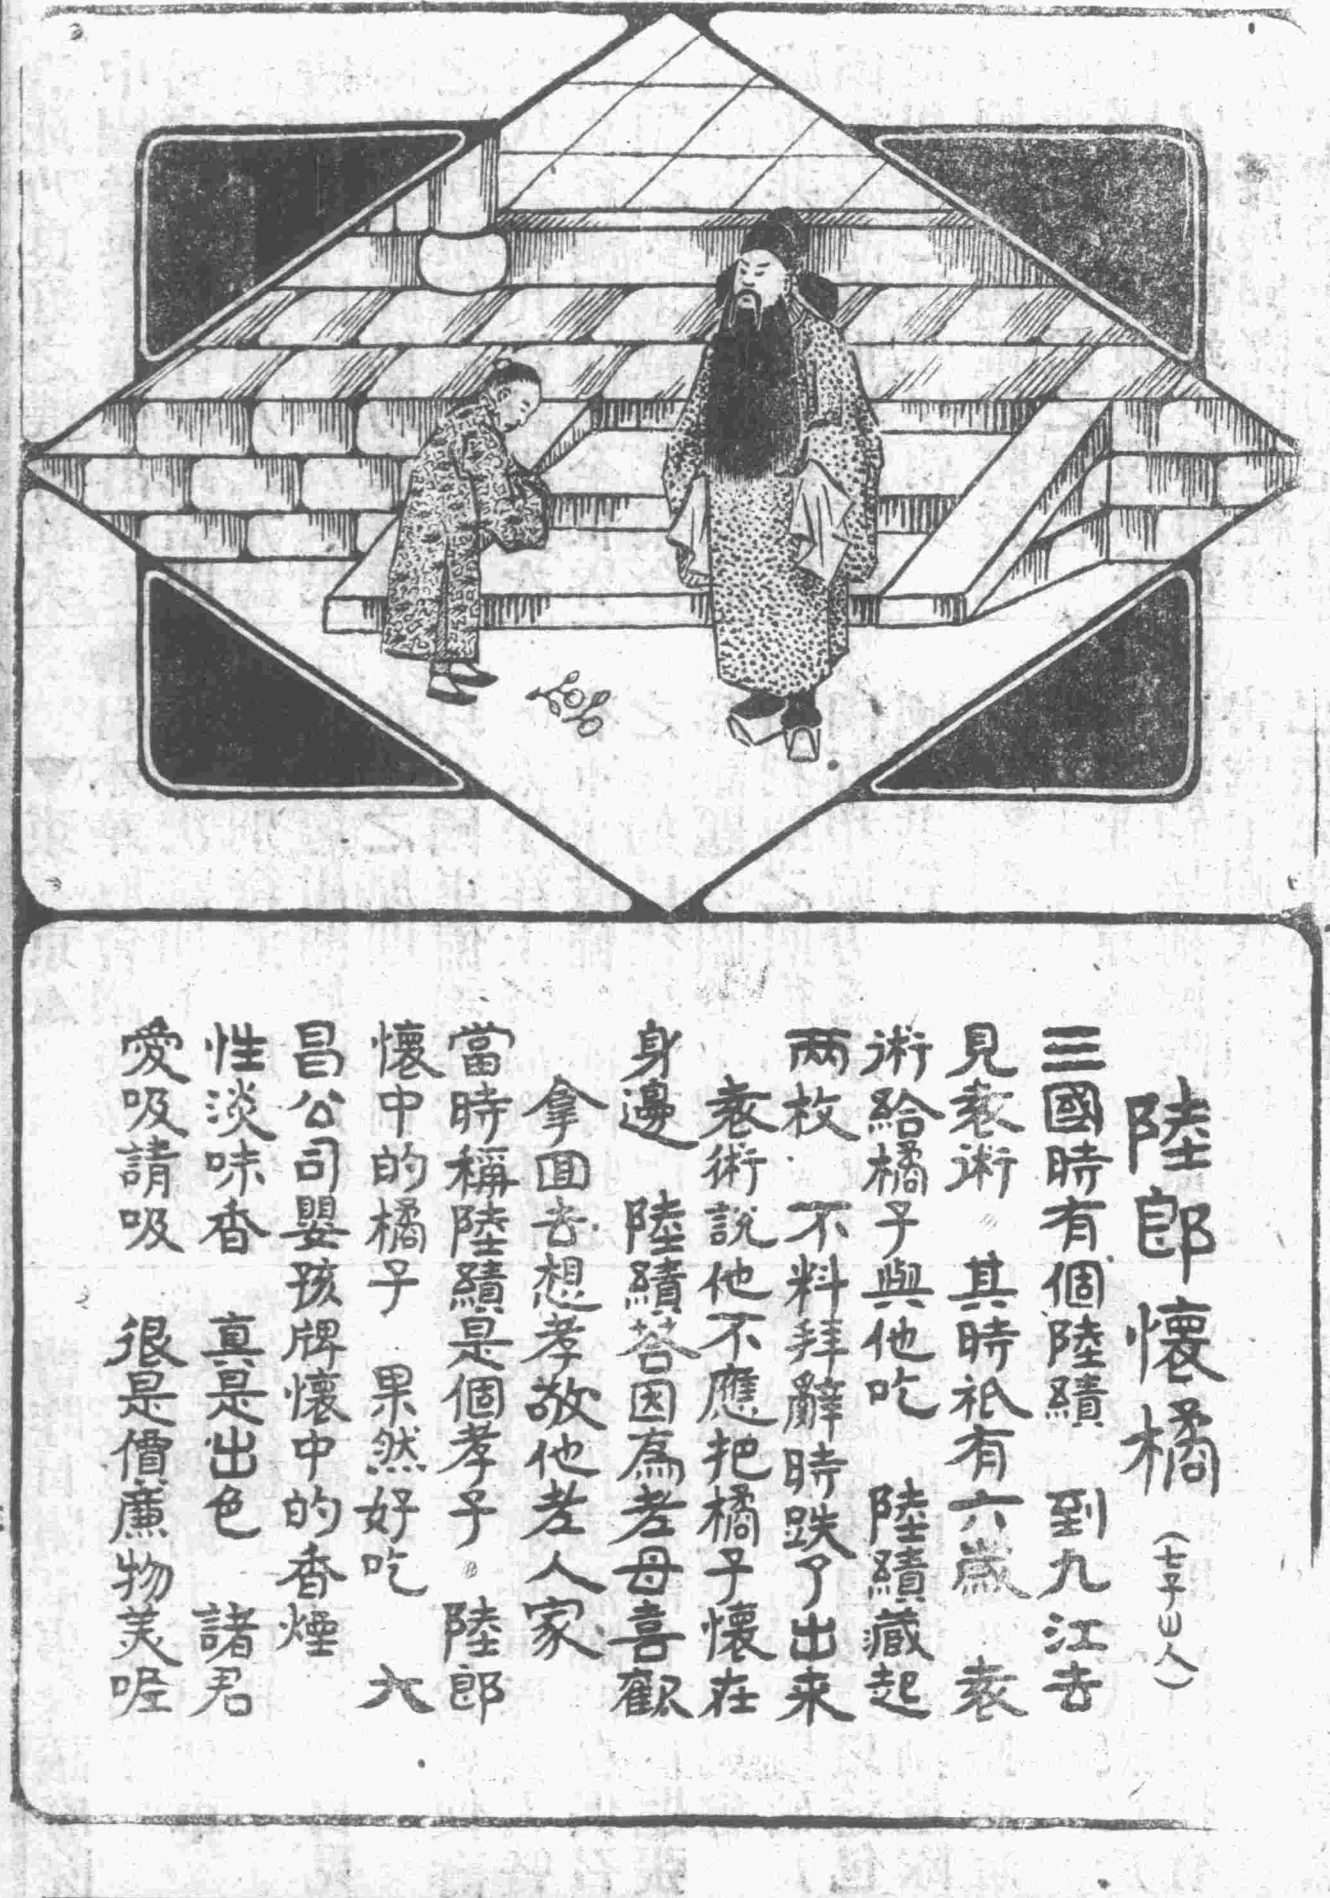 陸郎懷橘（七子山人）
三國時有個陸績　到九江去
見袁術　其時祇有六歲　袁
術給橘子與他吃　陸績藏起
兩枚　不料拜辭時跌了出来
袁術說他不應把橘子懷在
身邊　陸績答因為老母喜歡
拿囬去想孝敬他老人家
當時稱陸績是個孝子。陸郎
懷中的橘子　果然好吃　大
昌公司嬰孩牌懷中的香煙
性淡味香　真是出色　諸君
愛吸請吸　很是價廉物美喔